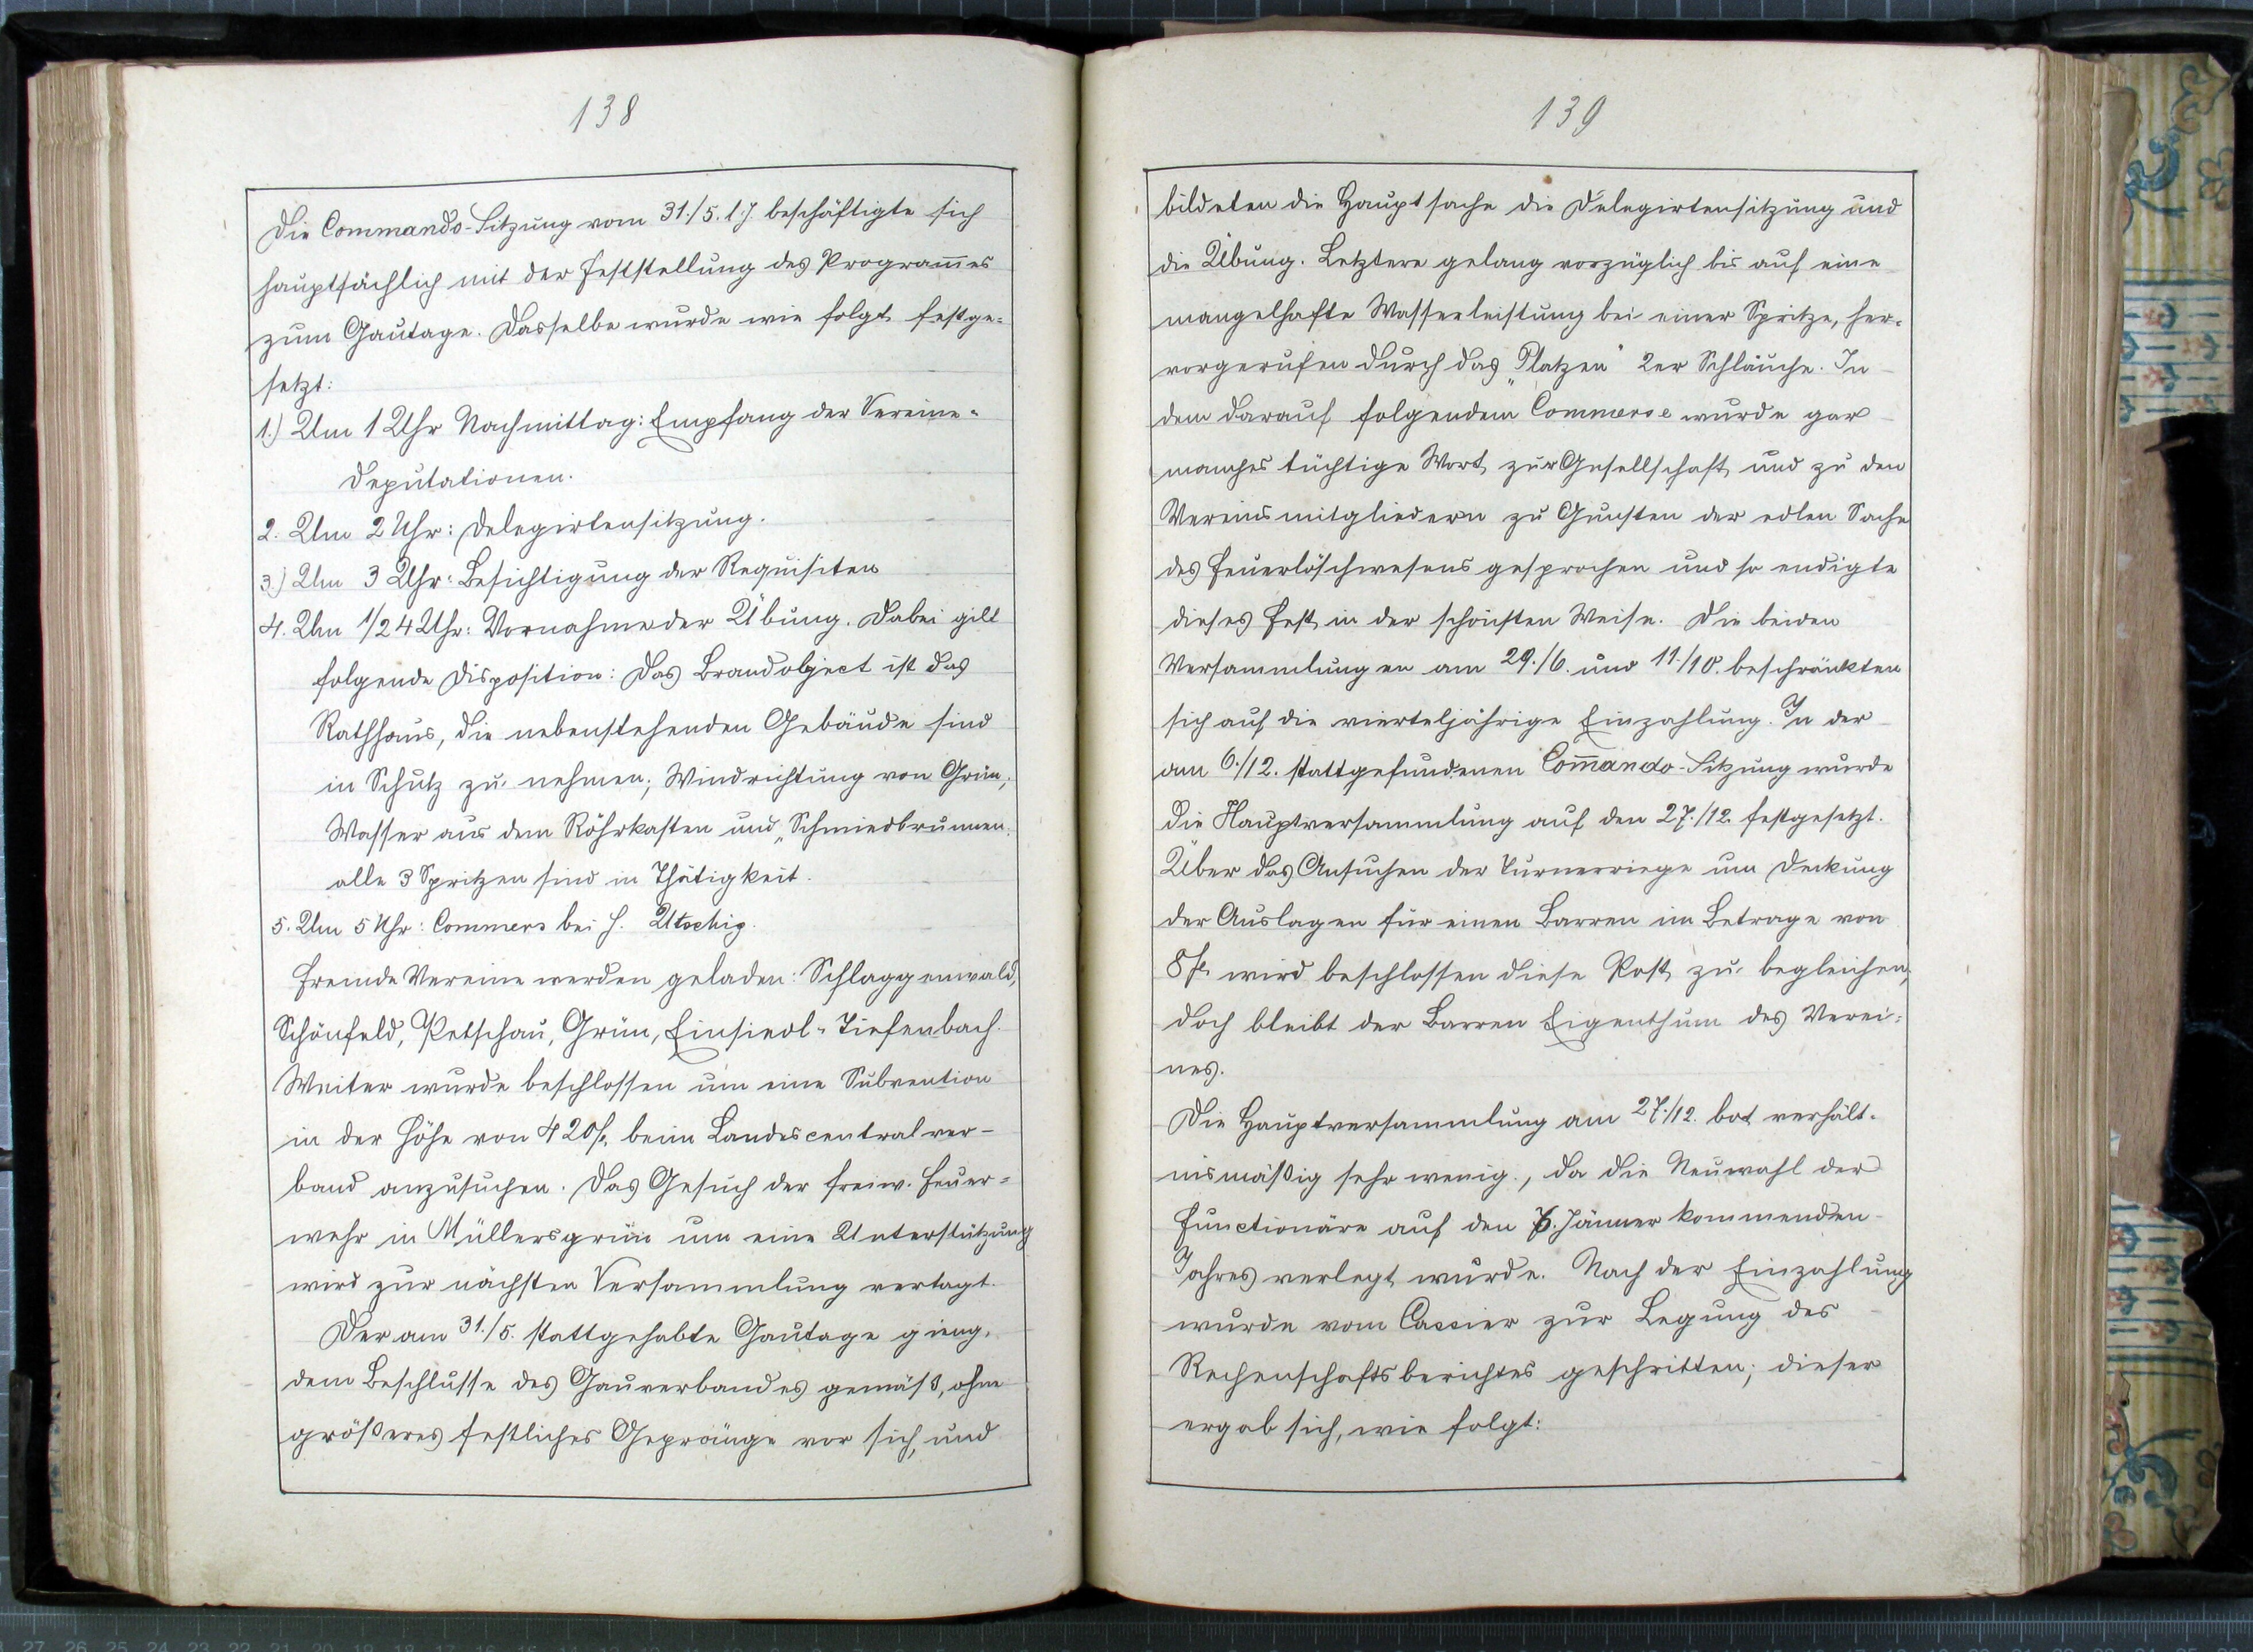 138
Die Commando-Sitzung vom 31./5. l. J. beschäftigte sich
hauptsächlich mit der Feststellung des Programmes
zum Gautage. Dasselbe wurde wie folgt festge-
setzt:
1.) Um 1 Uhr Nachmittag: Empfang der Vereine-
Deputationen.
2. Um 2 Uhr: Delegirtensitzung.
3.) Um 3 Uhr: Besichtigung der Requisiten
4. Um 1/2 4 Uhr: Vornahme der Übung. Dabei gilt
folgende Disposition: Das Brandobject ist das
Rathhaus, die nebenstehenden Gebäude sind
in Schutz zu nehmen; Windrichtung von Grün;
Wasser aus dem Röhrkasten und „Schmiedbrunnen;
alle 3 Spritzen sind in Thätigkeit.
5. Um 5 Uhr: Commers bei H. Utschig.
Fremde Vereine werden geladen: Schlaggenwald,
Schönfeld, Petschau, Grün, Einsiedl-Tiefenbach.
Weiter wurde beschlossen um eine Subvention
in der Höhe von 420 fl. beim Landescentralver-
band anzusuchen. Das Gesuch der freiw. Feuer-
wehr in Müllersgrün um eine Unterstützung
wird zur nächsten Versammlung vertagt.
Der am 31./5. stattgehabte Gautage gieng,
dem Beschlusse des Gauverbandes gemäß, ohne
größeres festliches Gepränge vor sich, und
139
bildeten die Hauptsache die Delegirtensitzung und
die Übung. Letztere gelang vorzüglich bis auf eine
mangelhafte Wasserleistung bei einer Spritze, her-
vorgerufen durch das „Platzen“ 2er Schläuche. In
dem darauf folgendem Commerse wurde gar
manches tüchtige Wort zur Gesellschaft und zu den
Vereinsmitgliedern zu Gunsten der edlen Sache
des Feuerlöschwesens gesprochen und so endigte
dieses Fest in der schönsten Weise. Die beiden
Versammlungen am 29./6. und 11./10. beschränkten
sich auf die vierteljährige Einzahlung. In der
am 6./12. stattgefundenen Commando-Sitzung wurde
die Hauptversammlung auf den 27./12. festgesetzt.
Über das Ansuchen der Turnerriege um Deckung
der Auslagen für einen Barren im Betrage von
8 fl. wird beschlossen diese Post zu begleichen,
doch bleibt der Barren Eigenthum des Verei-
nes.
Die Hauptversammlung am 27./12. bot verhält-
nismäßig sehr wenig, da die Neuwahl der
Functionäre auf den 6. Jänner kommenden
Jahres verlegt wurde. Nach der Einzahlung
wurde vom Cassier zur Legung des
Rechenschaftsberichtes geschritten; dieser
ergab sich, wie folgt: